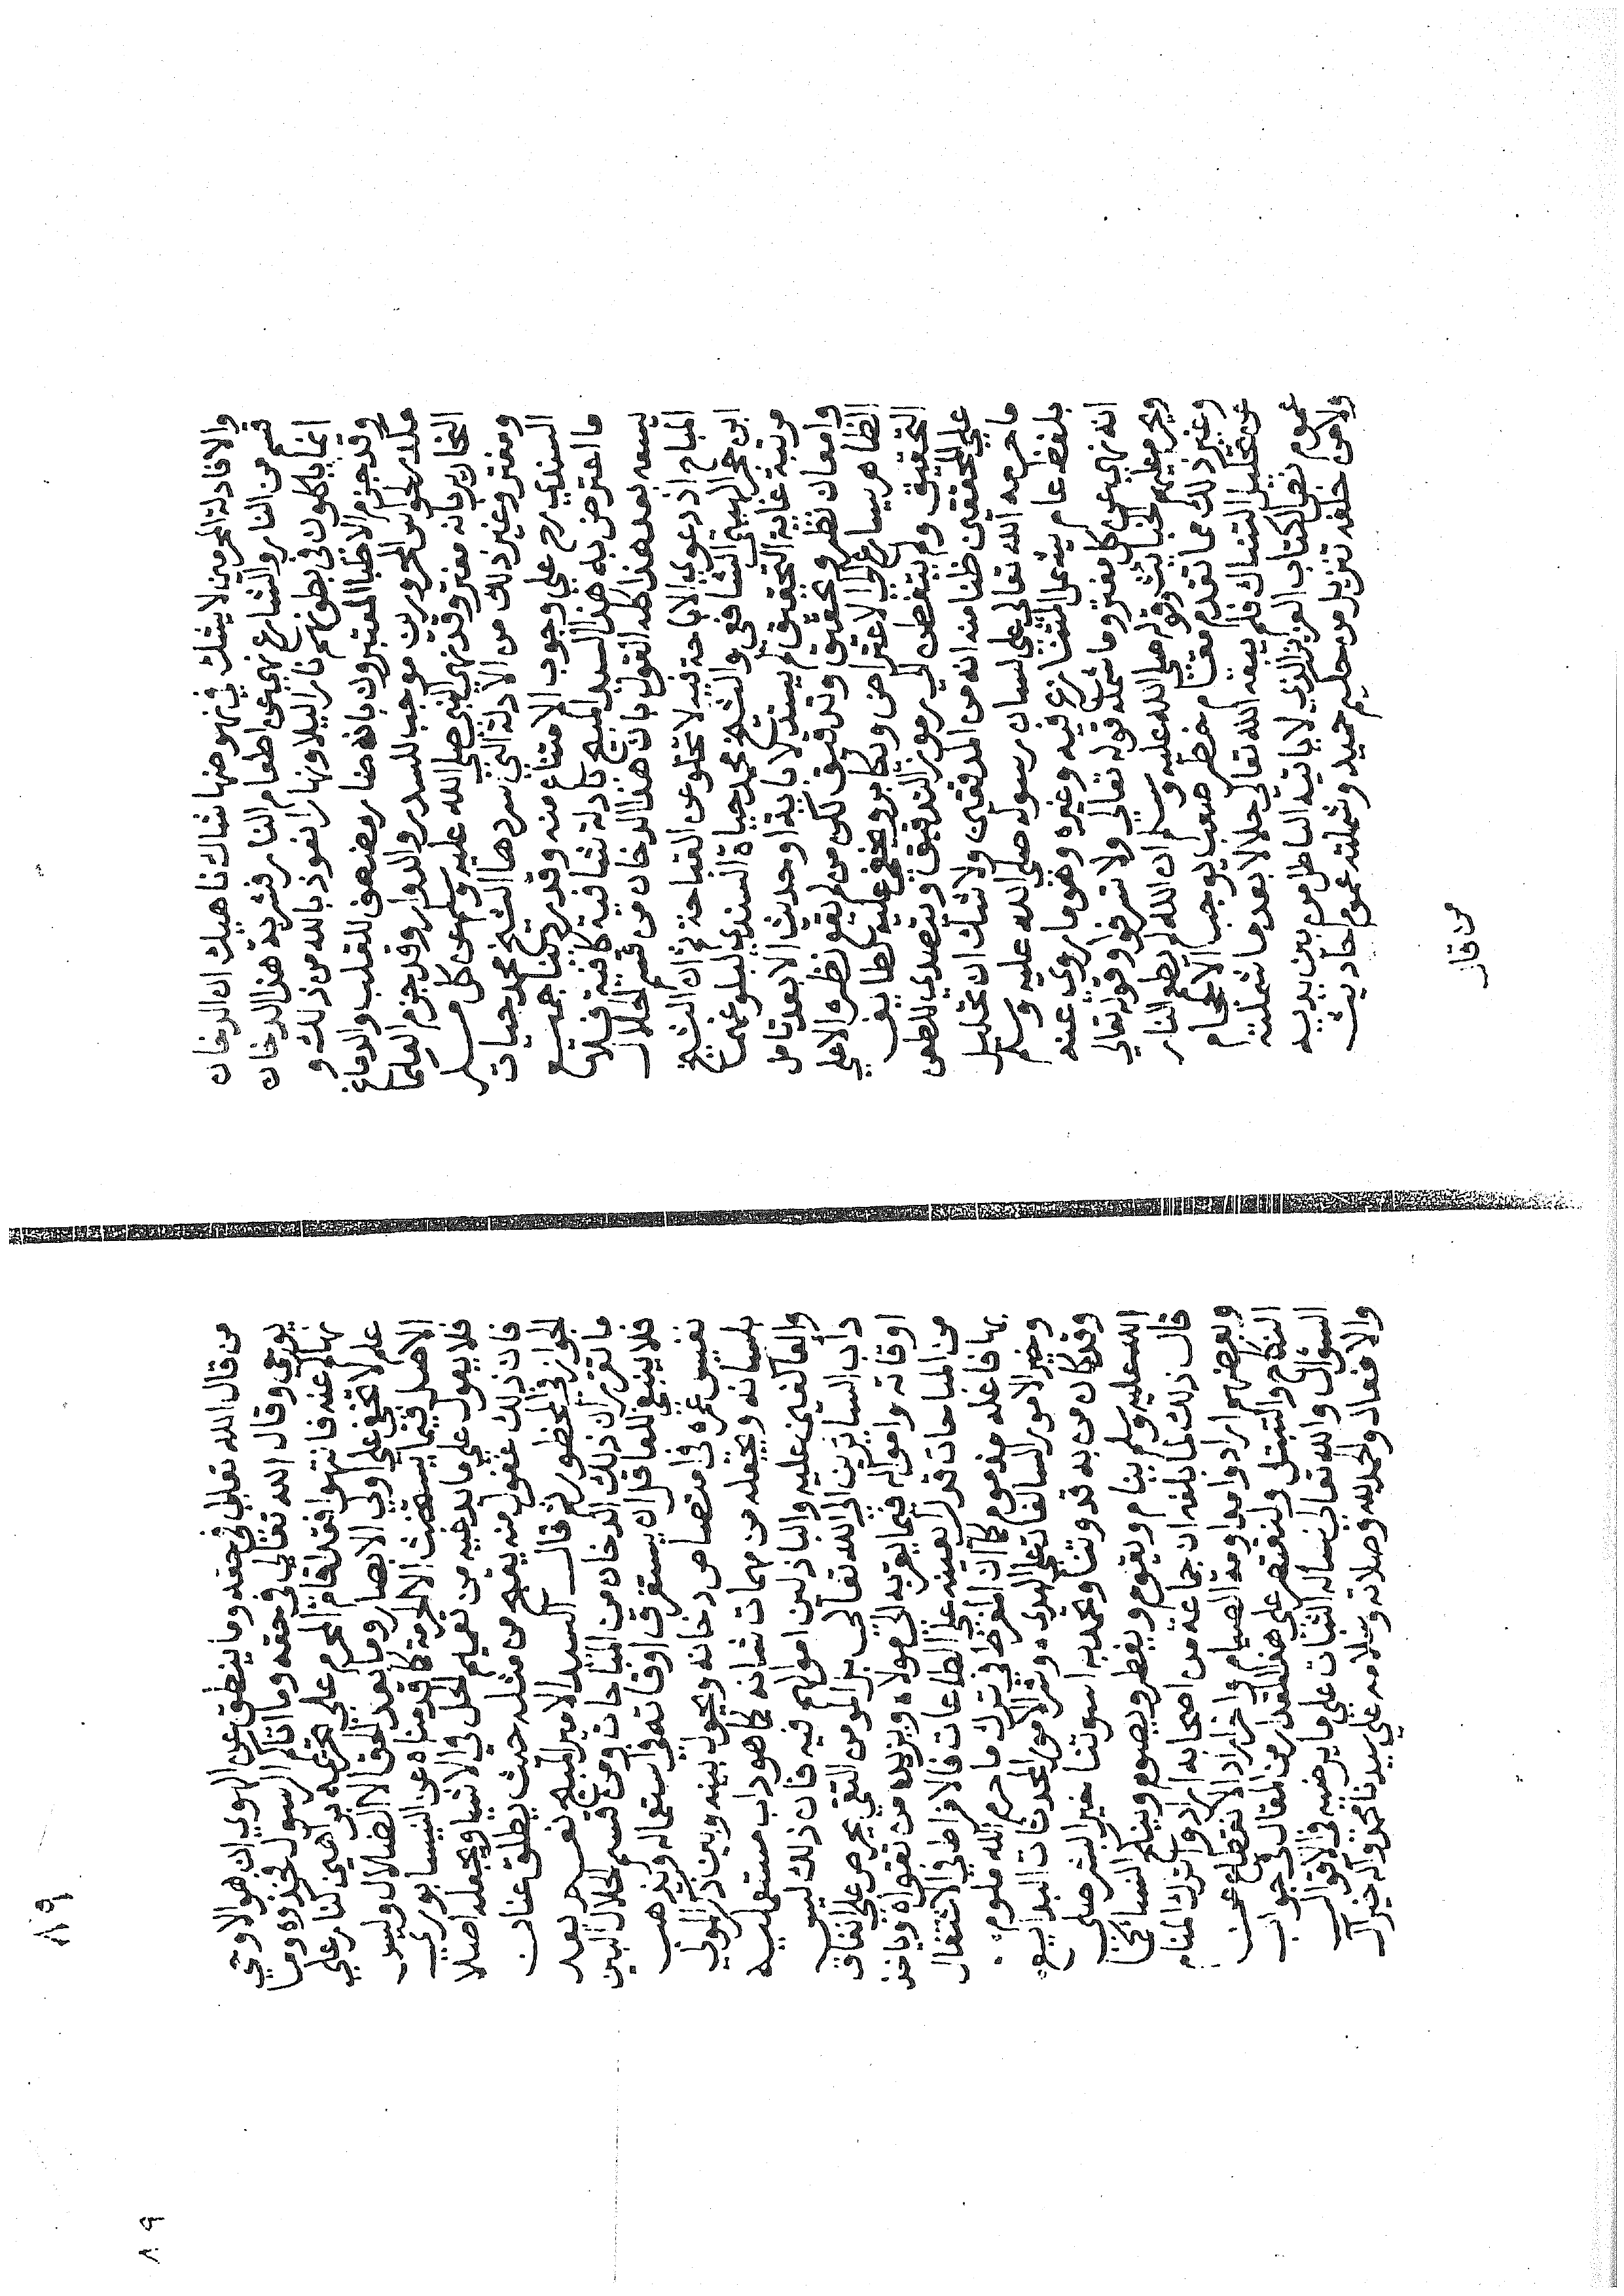 والا فادلة المحرمين لا يشك في نهوضها شاك ناهيك ان الدخان
قسم من النار والشارع نهى عن اطعام النار فشربة هذا الدخان
انما ياكلون في بطونهم نار ليلا ونهارا نعوذ بالله من ذلك و
وقد جزم الاطبا المعتبرون بانه ضار مضعف للقلب والدماغ
مكدر لحواس المحرورين موجب للسدر والدوار وقد جزم العلما
النحارير بانه مفتر وقد نهى النبي صلى الله عليه وسلم عن كل مسكر
ومفتر وغير ذلك من الادلة التي سردها الشيخ محمد حيات
السندي رح على وجوب الامتناع منه وقد رددنا جميع
ما اعترض به هذا السيد المبيح بادلة شافية كافية فلا
يسعه بعد هذا كله القول بان هذا الدخان من قسم الحلال
المباح اذ دعوى الاباحة فيه لا تخلو عن القباحة ثم ان الشيخ
ابن حجر الهيتمي الشافعي والشيخ محمد حياة السندي لبلوغهما
مرتبة غاية التحقيق لم يستدلا باية او حديث الا بعد تامل
وامعان نظر وتحقيق وتدقيق لكن من لم يقع نظره الا على
الظاهر يسارع الى الاعتراض ويكابر ويخفى عليه لطايف
التحقيق ولم يتفطن الى رموز التدقيق ويتصدى للطعن
على المحققين ظنا منه انه من المدققين ولا شك ان تحليل
ما حرمه الله تعالى على لسان رسوله صلى الله عليه وسلم
بلفظ عام يشمل المتنازع فيه وغيره وهو ما روي عنه
انه نهى عن كل مفتر وما شمله قوله تعالى ولا تسرفوا وقوله تعالى
ويحرم عليهم الخبائث وقوله صلى الله عليه وسلم ان الله لم يطعمنا النار
وغير ذلك مما تقدم مقام خطر صعب يوجب الاحجام
عن تحليل التنباك فلم يبقه الله تعالى حلالا بعد ما شملته
عموم نص الكتاب العزيز الذي لا ياتيه الباطل من بين يديه
ولا من خلفه تنزيل من حكيم حميد وشملته عموم احاديث
من قال
٨٩
٨٩
من قال الله تعالى في حقه وما ينطق عن الهوى ان هو الا وحي
يوحى وقال الله تعالى في حقه وما اتاكم الرسول فخذوه وما
نهاكم عنه فانتهوا فقد اقام المحرم على تحريمه براهين كنار على
علم لا تخفى على اولي الابصار وما بعد الحق الا الضلال وليس
الاصل فيما يستخبث الا الحرمة كما قدمناه عن النيسابوري
فلا يعول على ما يدعيه من تعميم الحل في الاشيا ويجعله اصلا
فان ذلك غفول منه يقبح من مثله حيث يطلق عنان
الجواز في المحظور ثم قال السيد الامير المبيح نعم بعد
ما تقرر ان ذلك الدخان من المباحات ومن قسم الحلال البين
فلا ينبغي للعاقل ان يستغرق اوقاته في استعماله ويذهب
نفيس عمره في امتصاص دخانه ويحول بينه وبين ذكر المولى
بلسانه ويجعله من مهمات شانه كما هو داب مستعمليه
والعاكفين عليه والباذلين اموالهم فيه فان ذلك ليس
داب السايرين الى الله تعالى بل المومن التقي يحرص على انفاق
اوقاته وامواله فيما يقربه الى مولاه ويزيده من تقواه وياخذ
من المباحات قدر المعينة على الطاعات فالافراط في الاشتغال
بها فاعله مذموم كما ان المفرط في ترك ما حرم الله ملوم.
وخير الامور السالفات على الهدى وشر الامور المحدثات البدايع
وقد كان من به قدوتنا وبحمد به اسوتنا خير البشر صلى
الله عليه وسلم ينام ويقوم ويفطر ويصوم وينكح النسا كما
قال ذلك لما بلغه ان جماعة من اصحابه ارادوا ترك المنام
وبعضهم ارادوا مداومة الصيام واخر اراد الانقطاع عن
النكاح والتبتل ولنقتصر على هذا القدر من المقال في جواب
السوال والله تعالى نساله الثبات على ما يرضيه في الاقوال
والافعال والحمد لله وصلاته وسلامه على سيدنا محمد وآله خير آل